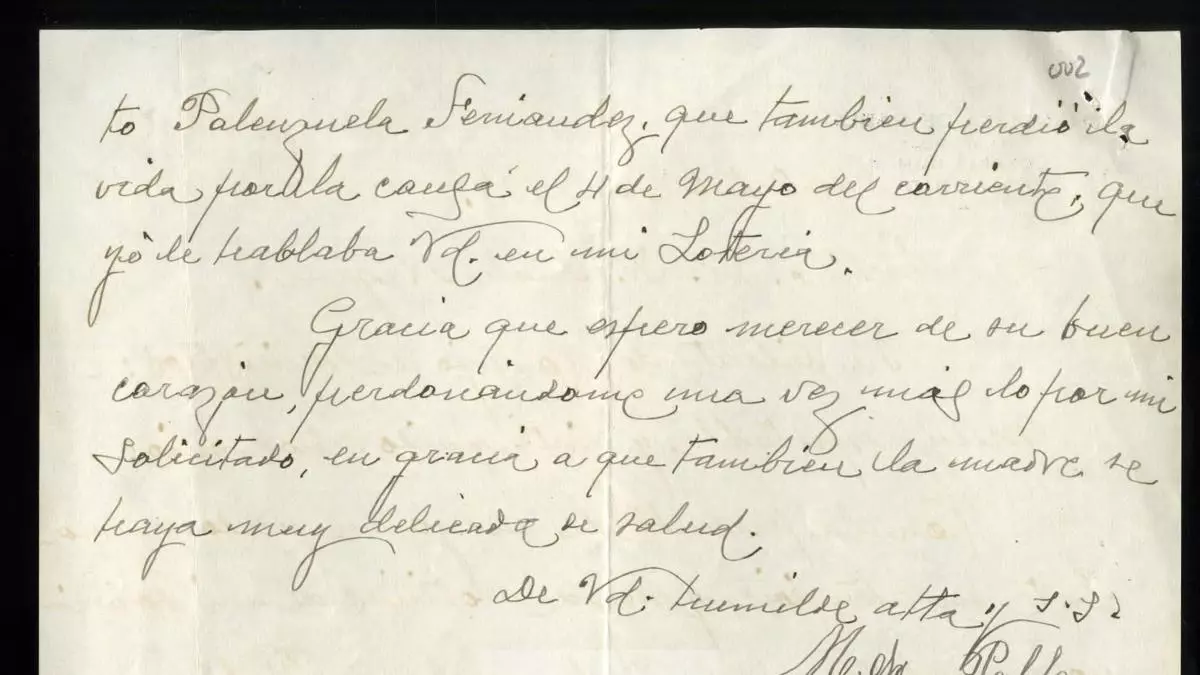 002
to Palenzuela Fernandez, que tambien perdió la
vida por la causa el 4 de Mayo del corriente, que
yo le hablaba Vd. en mi Loteria.
Gracia que espero merecer de su buen
corazón, perdonándome una vez más lo por mi
Solicitado, en gracia a que tambien la madre se
haya muy delicada de salud.
De Vd. humilde atta y S.S.